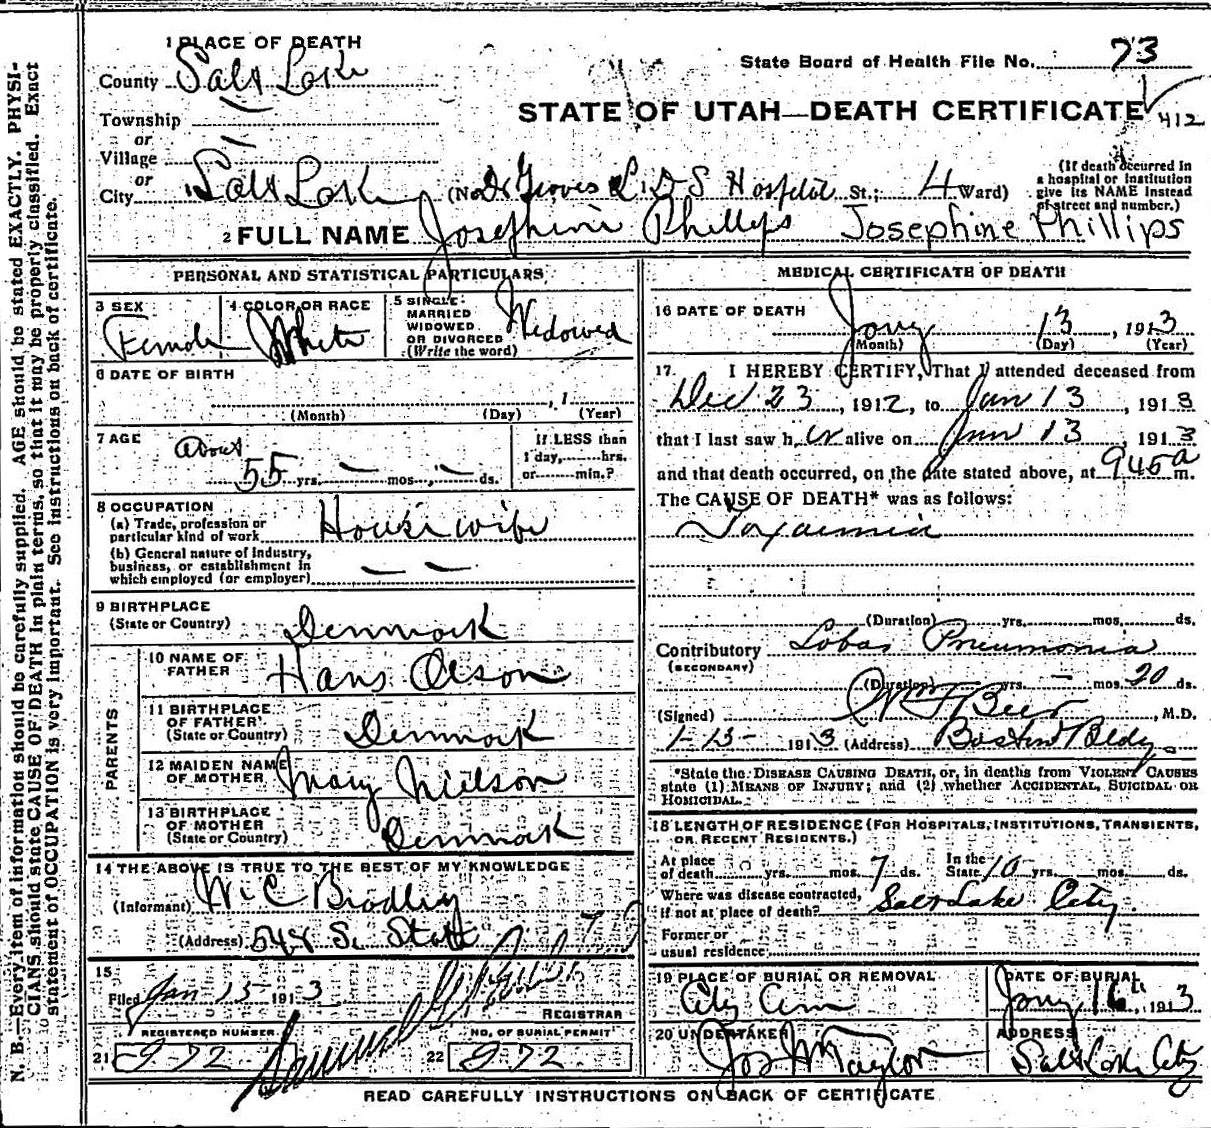 1 PLACE OF DEATH
County Salt Lake
State Board of Health File No. 73
STATE OF UTAH—DEATH CERTIFICATE
412
Township
or
Village
or
City Salt Lake (No. Dr Groves L.D.S Hospital St.; 4 Ward)
(If death occurred in a hospital or institution give its NAME instead of street and number.)
2 FULL NAME Josephine Phillips Josephine Phillips
PERSONAL AND STATISTICAL PARTICULARS
3 SEX Female
4 COLOR OR RACE White
5 SINGLE, MARRIED WIDOWED OR DIVORCED (Write the word) Widowed
6 DATE OF BIRTH
, 1
(Month) (Day) (Year)
7 AGE About
55 yrs. — mos. — ds.
If LESS than 1 day, hrs. or min.?
8 OCCUPATION
(a) Trade, profession or particular kind of work Housewife
(b) General nature of industry, business, or establishment in which employed (or employer) — —
9 BIRTHPLACE
(State or Country) Denmark
PARENTS
10 NAME OF FATHER Hans Olson
11 BIRTHPLACE OF FATHER (State or Country) Denmark
12 MAIDEN NAME OF MOTHER Mary Nielson
13 BIRTHPLACE OF MOTHER (State or Country) Denmark
14 THE ABOVE IS TRUE TO THE BEST OF MY KNOWLEDGE
(Informant) W C Bradley
(Address) 548 S. State
15
Filed Jan 15 1913
REGISTRAR
REGISTERED NUMBER
21 2-72
NO. OF BURIAL PERMIT
22 272
MEDICAL CERTIFICATE OF DEATH
16 DATE OF DEATH
Jany 13, 1913
(Month) (Day) (Year)
17. I HEREBY CERTIFY, That I attended deceased from
Dec 23, 1912, to Jan 13, 1913
that I last saw her alive on Jan 13, 1913
and that death occurred, on the date stated above, at 945 a m.
The CAUSE OF DEATH* was as follows:
Toxaemia
(Duration) yrs. mos. ds.
Contributory Lobar Pneumonia
(SECONDARY)
(Duration) yrs. — mos. 20 ds.
(Signed) Wm F Beer, M.D.
1-13- 1913 (Address) Boston Bldg.
*State the DISEASE CAUSING DEATH, or, in deaths from VIOLENT CAUSES
state (1) MEANS OF INJURY; and (2) whether ACCIDENTAL, SUICIDAL OR
HOMICIDAL.
18 LENGTH OF RESIDENCE (FOR HOSPITALS, INSTITUTIONS, TRANSIENTS,
OR RECENT RESIDENTS.)
At place of death yrs. mos. 7 ds. In the State 10 yrs. mos. ds.
Where was disease contracted, if not at place of death? Salt Lake City.
Former or usual residence
19 PLACE OF BURIAL OR REMOVAL
City Cem
DATE OF BURIAL
Jany 16th, 1913
20 UNDERTAKER
Jos Wm Taylor
ADDRESS
Salt Lake City
READ CAREFULLY INSTRUCTIONS ON BACK OF CERTIFICATE
N. B.—Every item of information should be carefully supplied. AGE should be stated EXACTLY. PHYSI-
CIANS should state CAUSE OF DEATH in plain terms, so that it may be properly classified. Exact
statement of OCCUPATION is very important. See instructions on back of certificate.